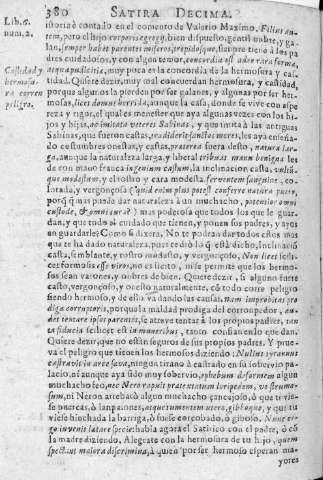 380 SATIRA DECIMA.
Lib. 6.
num. 2.
Castidad y
hermosu-
ra corren
peligro.
istoria contada en el comento de Valerio Maximo, Filius au-
tem, pero el hijo corporis egregii, bien dispuesto, gentil ombre, y ga-
lan, semper habet parentes miseros, trepidosque, siempre tiene à los pa
dres cuidadosos, y con algun temor, concordia est adeo rara formæ,
atque pudicitiæ, muy poca es la concordia de la hermosura y cas
tidad. Quiere dezir, muy mal concuerdan hermosura, y castidad,
porque algunos la pierden por ser galanes, y algunas por ser her-
mosas, licet domus horrida, aunque la casa, donde se vive con aspe
reza y rigor, el qual es menester que aya algunas vezes con los hi-
jos y hijas, ac imitata veteres Sabinas, y que imita à las antiguas
Sabinas, que fueron castas, tradiderit sanctos mores, les aya enseña-
do costumbres onestas, y castas, præterea fuera desto, natura lar-
ga, aunque la naturaleza larga, y liberal tribuat manu benigna les
dè con mano franca ingenium castum, la inclinacion casta, vultum-
que modestum, y el rostro y cara modesta ferventem sanguine, co-
lorada, y vergonçosa (quid enim plus potest conferre natura puero,
porq̃ què mas puede dar naturaleza à un muchacho, potentior omni
custode, & omni cura?) mas poderosa que todos los que le guar-
dan, y que todo el cuidado que tienen, y ponen sus padres, y ayos
en guardarle? Como si dixera, No te podrà dar todos estos mas
que te ha dado naturaleza, pues te diò lo q̃ està dicho, Inclinaciõ
casta, semblante, y rostro modesto, y vergonçoso, Non licet scili-
cet formosis esse viros, no es licito, ni se permite que los hermo-
sos sean varones, y ombres de bien. Quiere dezir, si alguno fuere
casto, vergonçoso, y onesto naturalmente, cõ todo corre peligro
siendo hermoso, y de esto va dando las causas, nam improbitas pro
diga corruptoris, porque la maldad prodiga del corrompedor, au-
det tentare ipsos parentes, se atreve tentar à los propios padres, tan-
ta fiducia scilicet est in muneribus, tanto confian en lo que dan.
Quiere dezir, que no estàn seguros de sus propios padres. Y prue-
va el peligro que tienen los hermosos diziendo: Nullus tyrannus
castravit in arce sæva, ningun tirano à castrado en su sobervio pa-
lacio, ni aunque aya sido muy sobervio, ephebum deformem algun
muchacho feo, nec Nero rapuit prætextatum loripedem, vel strumo-
sum, ni Neron arrebatò algun muchacho cancajoso, ò que ti vie-
sse puercas, ò lamparones, atque tumentem utero, gibboque, y que tu
viese hinchada la barriga, ò fuese corcobado, ò giboso. Nunc er-
go invenit lætare specie: habla agora el Satirico con el padre, ò cõ
la madre diziendo, Alegrate con la hermosura de tu hijo, quem
expectant majora discrimina, à quien por ser hermoso esperan ma-
yores